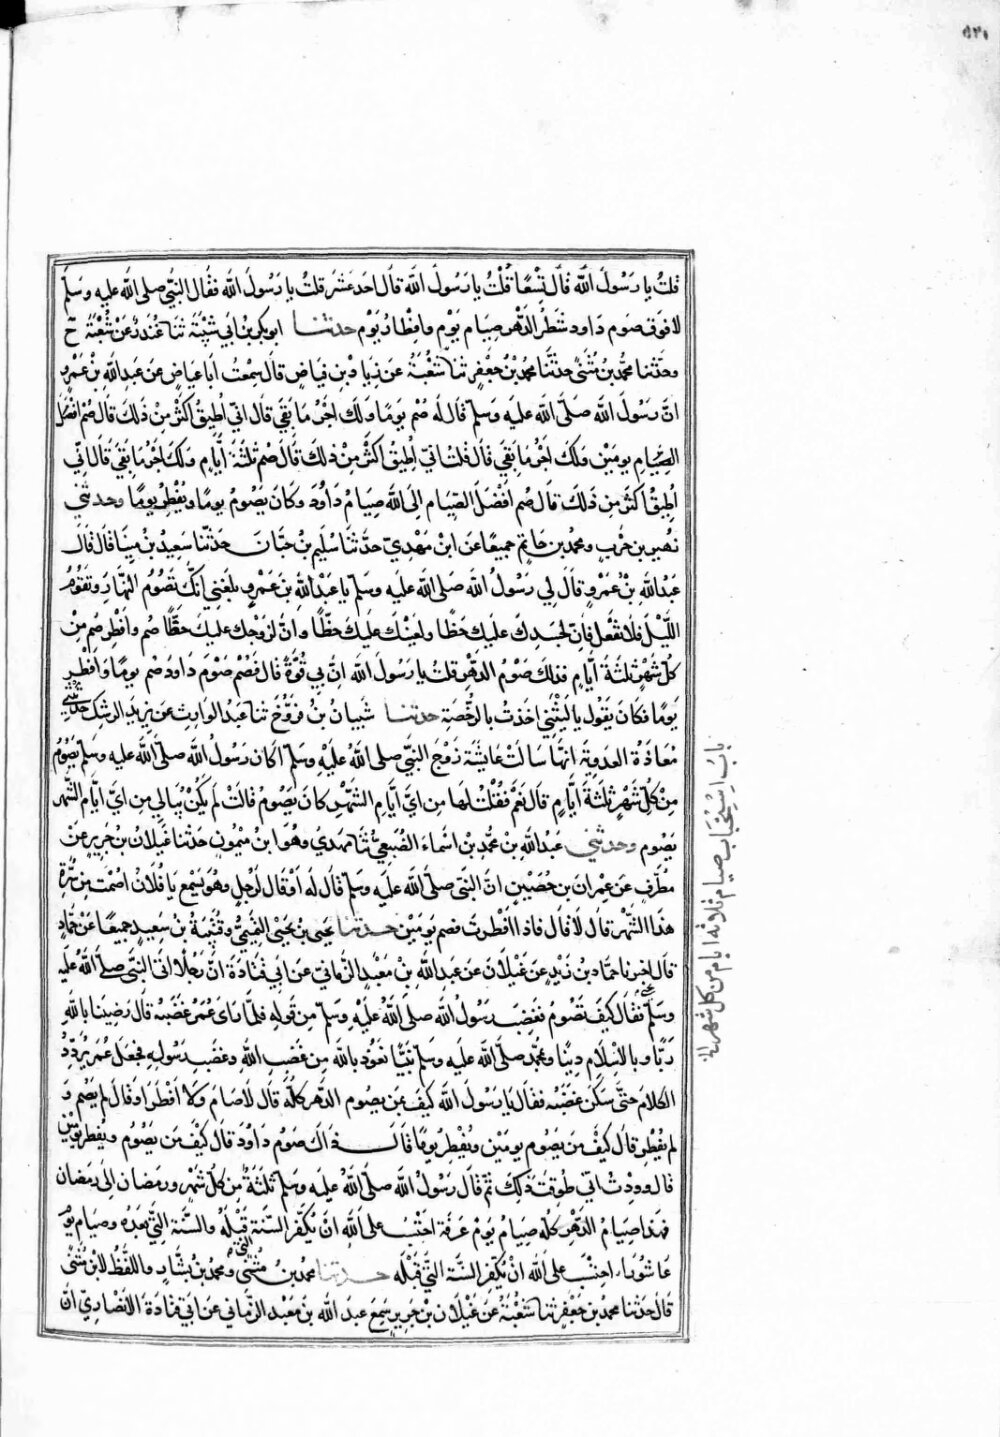 ٥٢٠
قلت يا رسول الله قال تسعا قلت يا رسول الله قال احد عشر قلت يا رسول الله فقال النبي صلى الله عليه وسلم
لا فوق صوم داود شطر الدهر صيام يوم وافطار يوم حدثنا ابو بكر بن ابي شيبة ثنا غندر عن شعبة ح
وحدثنا محمد بن مثنى حدثنا محمد بن جعفر ثنا شعبة عن زياد بن فياض قال سمعت ابا عياض عن عبد الله بن عمرو
ان رسول الله صلى الله عليه وسلم قال له صم يوما ولك اجر ما بقي قال اني اطيق اكثر من ذلك قال صم افضل
الصيام يومين ولك اجر ما بقي قال قلت اني اطيق اكثر من ذلك قال صم ثلثة ايام ولك اجر ما بقي قال اني
اطيق اكثر من ذلك قال صم افضل الصيام الى الله صيام داود وكان يصوم يوما ويفطر يوما وحدثني
زهير بن حرب ومحمد بن حاتم جميعا عن ابن مهدي حدثنا سليم بن حبان حدثنا سعيد بن مينا قال قال
عبد الله بن عمرو قال لي رسول الله صلى الله عليه وسلم يا عبد الله بن عمرو بلغني انك تصوم النهار وتقوم
الليل فلا تفعل فان لجسدك عليك حظا ولعينك عليك حظا وان لزوجك عليك حظا صم وافطر صم من
كل شهر ثلثة ايام فذلك صوم الدهر قلت يا رسول الله ان بي قوة قال فصم صوم داود صم يوما وافطر
يوما فكان يقول يا ليتني اخذت بالرخصة حدثنا شيبان بن فروخ ثنا عبد الوارث عن يزيد الرشك حدثتني
معاذة العدوية انها سالت عايشة زوج النبي صلى الله عليه وسلم اكان رسول الله صلى الله عليه وسلم يصوم
من كل شهر ثلثة ايام قال نعم فقلت لها من اي ايام الشهر كان يصوم قالت لم يكن يبالي من اي ايام الشهر
يصوم وحدثني عبد الله بن محمد بن اسماء الضبعي ثنا مهدي وهو ابن ميمون حدثنا غيلان بن جرير عن
مطرف عن عمران بن حصين ان النبي صلى الله عليه وسلم قال له او قال لرجل وهو يسمع يا فلان اصمت من سرة
هذا الشهر قال لا قال فاذا افطرت فصم يومين حدثنا يحيى بن يحيى التميمي وقتيبة بن سعيد جميعا عن حماد
قال اخبرنا حماد بن زيد عن غيلان عن عبد الله بن معبد الزماني عن ابي قتادة ان رجلا اتى النبي صلى الله عليه
وسلم فقال كيف تصوم فغضب رسول الله صلى الله عليه وسلم من قوله فلما راى عمر غضبه قال رضينا بالله
ربا وبالاسلام دينا وبمحمد صلى الله عليه وسلم نبيا نعوذ بالله من غضب الله وغضب رسوله فجعل عمر يردد
الكلام حتى سكن غضبه فقال يا رسول الله كيف بمن يصوم الدهر كله قال لا صام ولا افطر او قال لم يصم و
لم يفطر قال كيف من يصوم يومين ويفطر يوما قال ذاك صوم داود قال كيف من يصوم ويفطر يومين
قال وددت اني طوقت ذلك ثم قال رسول الله صلى الله عليه وسلم ثلثة من كل شهر ورمضان الى رمضان
فهذا صيام الدهر كله صيام يوم عرفة احتسب على الله ان يكفر السنة قبله والسنة التي بعده وصيام يوم
عاشوراء احتسب على الله ان يكفر السنة التي قبله حدثنا محمد بن مثنى ومحمد بن بشار واللفظ لابن مثنى
قال حدثنا محمد بن جعفر ثنا شعبة عن غيلان بن جرير سمع عبد الله بن معبد الزماني عن ابي قتادة الانصاري ان
باب استحباب صيام ثلاثة ايام من كل شهر